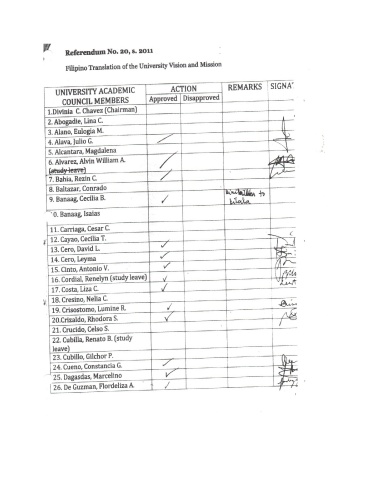 Referendum No. 20, s. 2011
Filipino Translation of the University Vision and Mission
UNIVERSITY ACADEMIC COUNCIL MEMBERS ACTION REMARKS SIGNA
Approved Disapproved
1.Divinia C. Chavez (Chairman)
2. Abogadie, Lina C.
3. Alano, Eulogia M.
4. Alava, Julio G.
5. Alcantara, Magdalena
6. Alvarez, Alvin William A.
(study leave)
7. Bahia, Rezin C.
8. Baltazar, Conrado
9. Banaag, Cecilia B.
0. Banaag, Isaias
11. Carriaga, Cesar C.
12. Cayao, Cecilia T.
13. Cero, David L.
14. Cero, Leyma
15. Cinto, Antonio V.
16. Cordial, Renelyn (study leave)
17. Costa, Liza C.
18. Cresino, Nelia C.
19. Crisostomo, Lumine R.
20.Crizaldo, Rhodora S.
21. Crucido, Celso S.
22. Cubilla, Renato B. (study
leave)
23. Cubillo, Gilchor P.
24. Cueno, Constancia G.
25. Dagasdas, Marcelino
26. De Guzman, Flordeliza A.